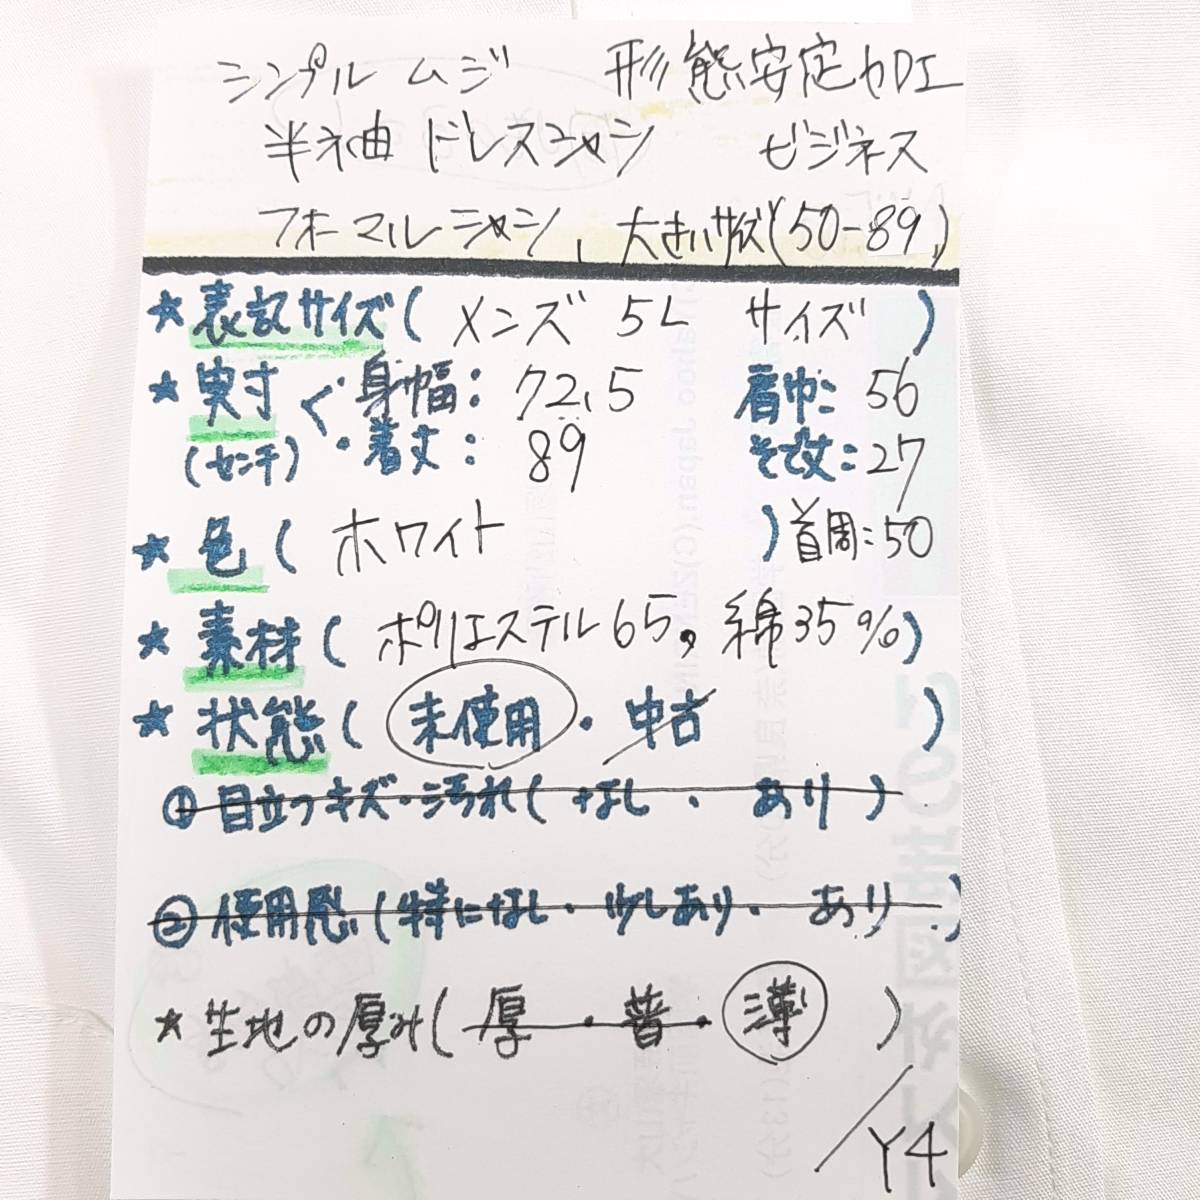 シンプル ムジ 形態安定加工
半袖 ドレスシャツ ビジネス
フォーマルシャツ、大きいサイズ(50-89)
★表記サイズ( メンズ 5L サイズ )
★実寸 く・身幅: 72.5 肩巾: 56
(センチ) ・着丈: 89 そで丈: 27
★色( ホワイト ) 首周:50
★素材( ポリエステル65, 綿35%)
★状態( 未使用・中古 )
①目立つキズ・汚れ( なし ・ あり )
②使用感(特になし・少しあり・ あり )
★生地の厚み( 厚 ・ 普・ 薄 )
/Y4